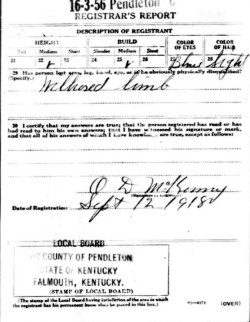 16-3-56 Pendleton C
REGISTRAR'S REPORT
DESCRIPTION OF REGISTRANT
HEIGHT BUILD COLOR OF EYES COLOR OF HAIR
Tall Medium Short Slender Medium Stout
21 22 23 24 25 26 27 28
Blue Light
29 Has person lost arm, leg, hand, eye, or is he obviously physically disqualified?
(Specify.)
Withered Limb
30 I certify that my answers are true; that the person registered has read or has
had read to him his own answers; that I have witnessed his signature or mark,
and that all of his answers of which I have knowledge are true, except as follows:
D McKenney
Date of Registration Sept 12 1918
LOCAL BOARD
COUNTY OF PENDLETON
STATE OF KENTUCKY
FALMOUTH, KENTUCKY.
(STAMP OF LOCAL BOARD)
(The stamp of the Local Board having jurisdiction of the area in which
the registrant has his permanent home shall be placed in this box.)
(OVER)